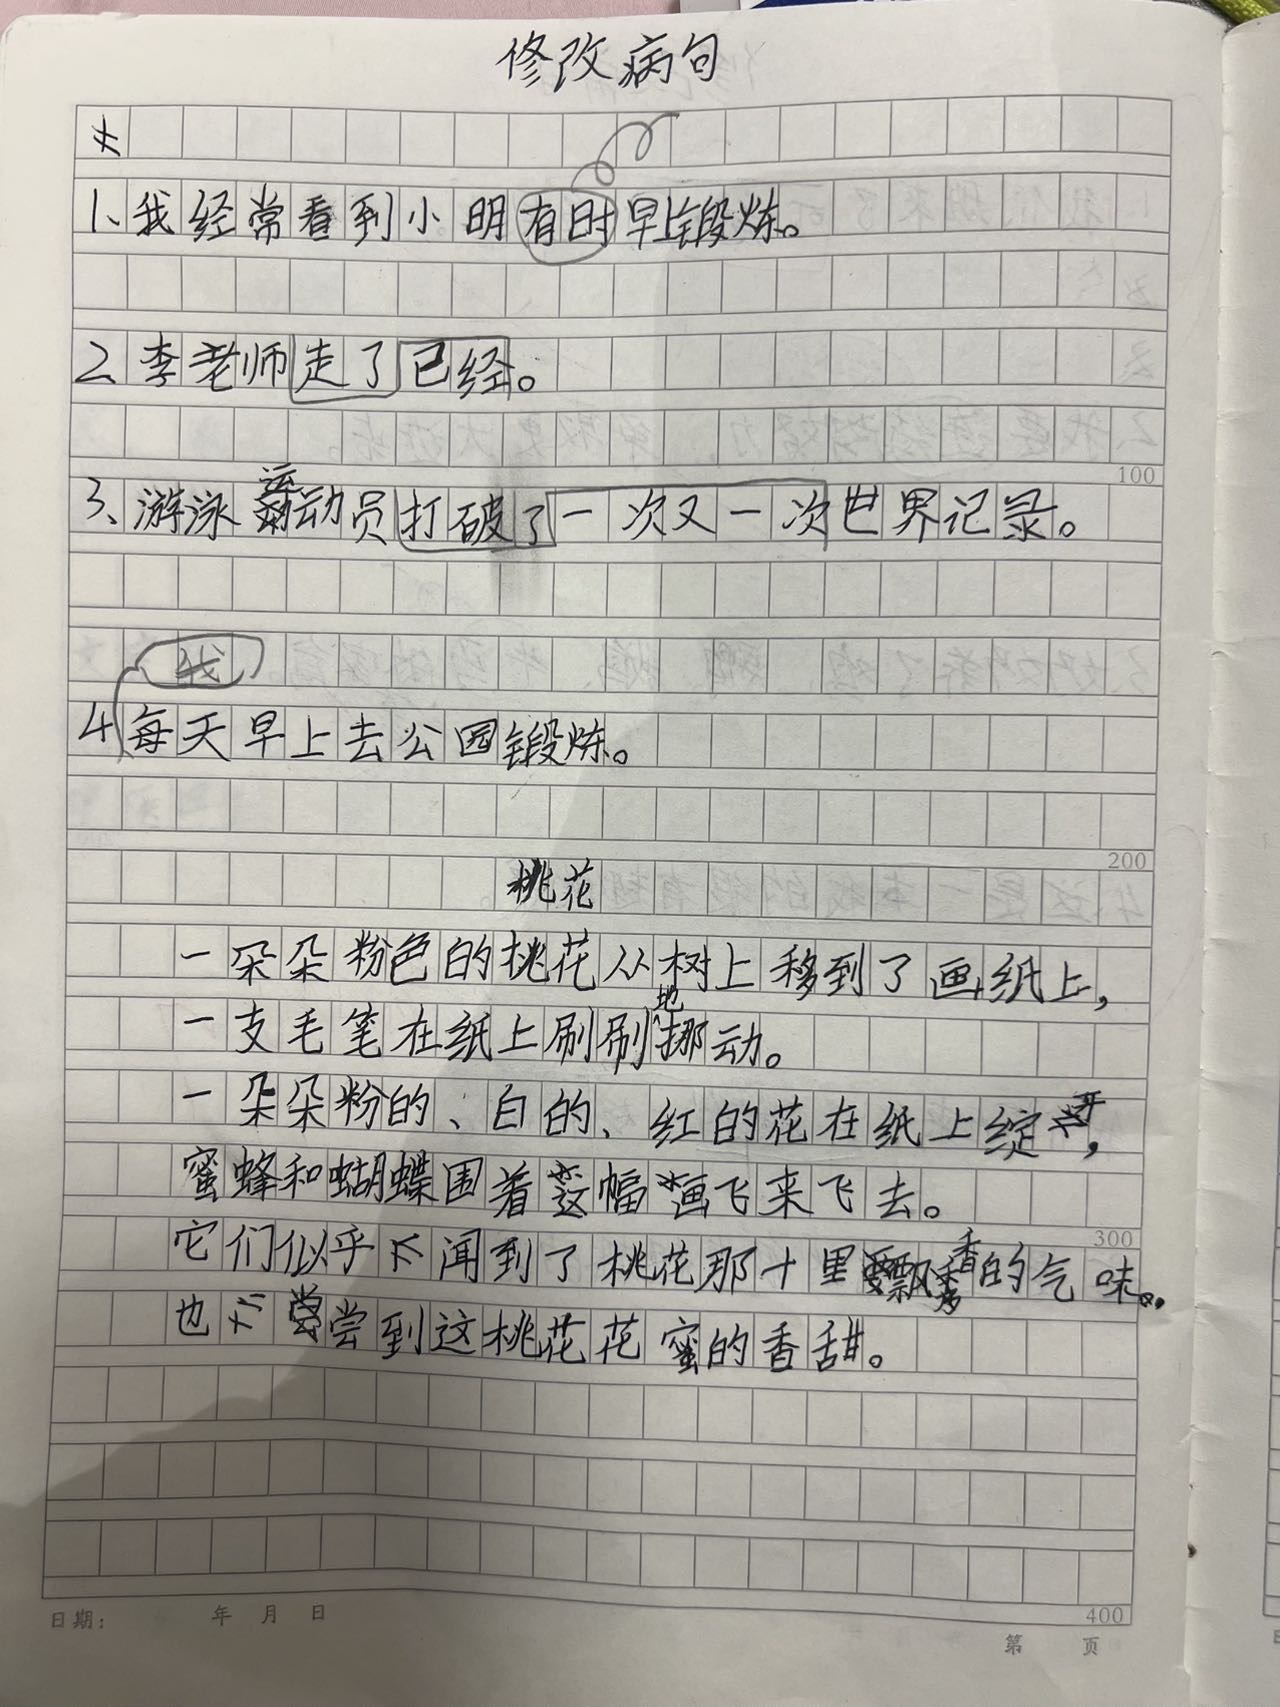 修改病句
1、我经常看到小明有时早上锻炼。
2、李老师走了已经。
100
3、游泳运动员打破了一次又一次世界记录。
我
4、每天早上去公园锻炼。
200
桃花
一朵朵粉色的桃花从树上移到了画纸上，
一支毛笔在纸上刷刷地挪动。
一朵朵粉的、白的、红的花在纸上绽开，
蜜蜂和蝴蝶围着这幅画飞来飞去。
300
它们似乎闻到了桃花那十里飘香的气味，
也尝到这桃花花蜜的香甜。
400
日期： 年 月 日
第 页